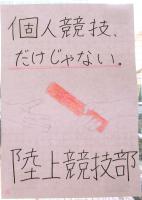 個人競技、
だけじゃない。
陸上競技部